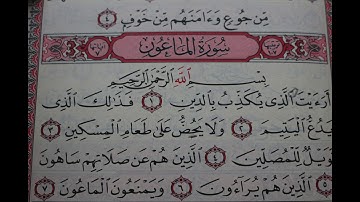 مِّن جُوعٍ وَءَامَنَهُم مِّنْ خَوْفٍ ٤
سُورَةُ الْمَاعُونِ
بِسْمِ اللَّهِ الرَّحْمَٰنِ الرَّحِيمِ
أَرَءَيْتَ الَّذِى يُكَذِّبُ بِالدِّينِ ١ فَذَٰلِكَ الَّذِى
يَدُعُّ الْيَتِيمَ ٢ وَلَا يَحُضُّ عَلَىٰ طَعَامِ الْمِسْكِينِ ٣
فَوَيْلٌ لِّلْمُصَلِّينَ ٤ الَّذِينَ هُمْ عَن صَلَاتِهِمْ سَاهُونَ
٥ الَّذِينَ هُمْ يُرَآءُونَ ٦ وَيَمْنَعُونَ الْمَاعُونَ ٧